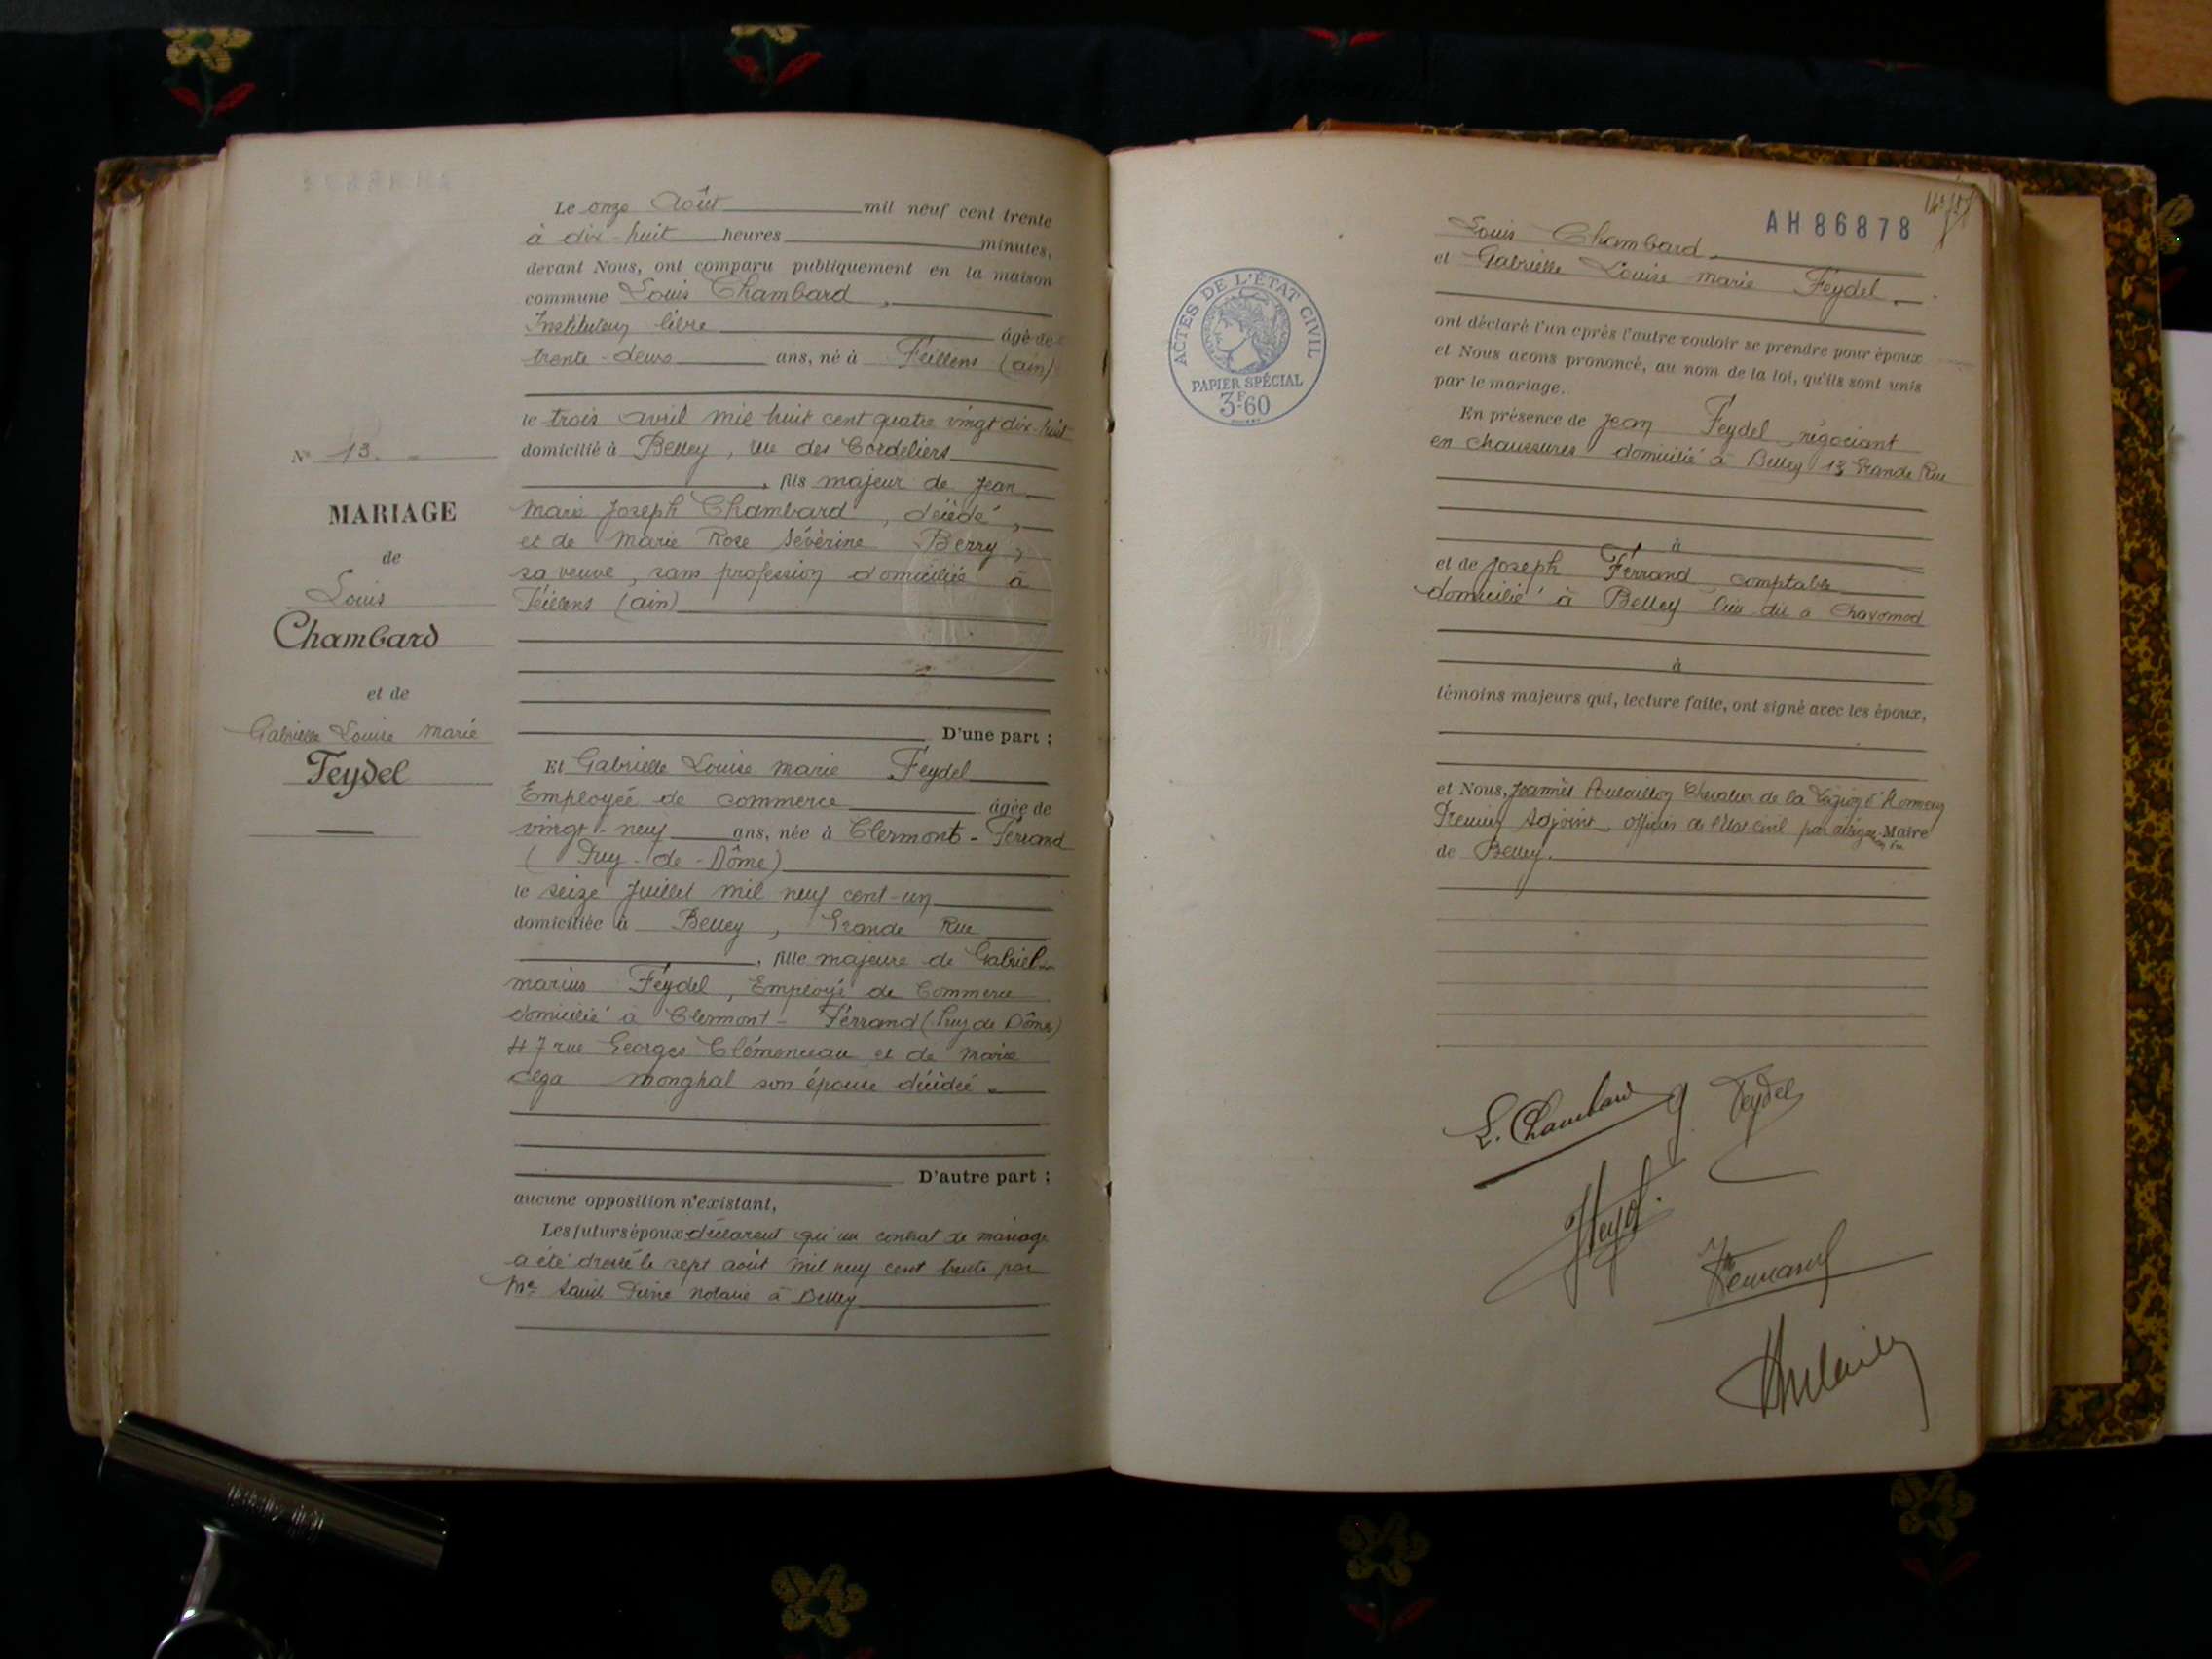 Le onze Août mil neuf cent trente
à dix-huit heures minutes,
devant Nous, ont comparu publiquement en la maison
commune Louis Chambard,
Instituteur libre âgé de
trente-deux ans, né à Feillens (ain)
le trois avril mil huit cent quatre vingt dix-huit
domicilié à Belley, rue des Cordeliers
, fils majeur de Jean
Marie Joseph Chambard, décédé,
et de Marie Rose Sévérine Berry,
sa veuve, sans profession domiciliée à
Feillens (ain)
D'une part ;
N° 13.
MARIAGE
de
Louis
Chambard
et de
Gabrielle Louise Marie
Feydel
Et Gabrielle Louise Marie Feydel
Employée de commerce âgée de
vingt-neuf ans, née à Clermont-Ferrand
(Puy-de-Dôme)
le seize Juillet mil neuf cent-un
domiciliée à Belley, Grande Rue
, fille majeure de Gabriel
Marius Feydel, Employé de Commerce
domicilié à Clermont-Ferrand (Puy de Dôme)
47 rue Georges Clémenceau et de Marie
monghal son épouse décédée.
D'autre part ;
aucune opposition n'existant,
Les futurs époux déclarent qu'un contrat de mariage
a été dressé le sept août mil neuf cent trente par
Me notaire à Belley
AH 86878
ACTES DE L'ÉTAT CIVIL
PAPIER SPÉCIAL
3F60
Louis Chambard
et Gabrielle Louise Marie Feydel.
ont déclaré l'un après l'autre vouloir se prendre pour époux
et Nous avons prononcé, au nom de la loi, qu'ils sont unis
par le mariage.
En présence de Jean Feydel, négociant
en chaussures domicilié à Belley 13 Grande Rue
à
et de Joseph Ferrand, comptable
domicilié à Belley lieu dit à Chavomod
à
témoins majeurs qui, lecture faite, ont signé avec les époux,
et Nous, Chevalier de la Légion d'Honneur
Premier Adjoint officier de l'État Civil par Maire
de Belley.
L. Chambard
g Feydel
JFeydel
Ferrand